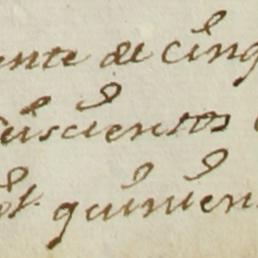 ente de cinq
seiscientos
quinien